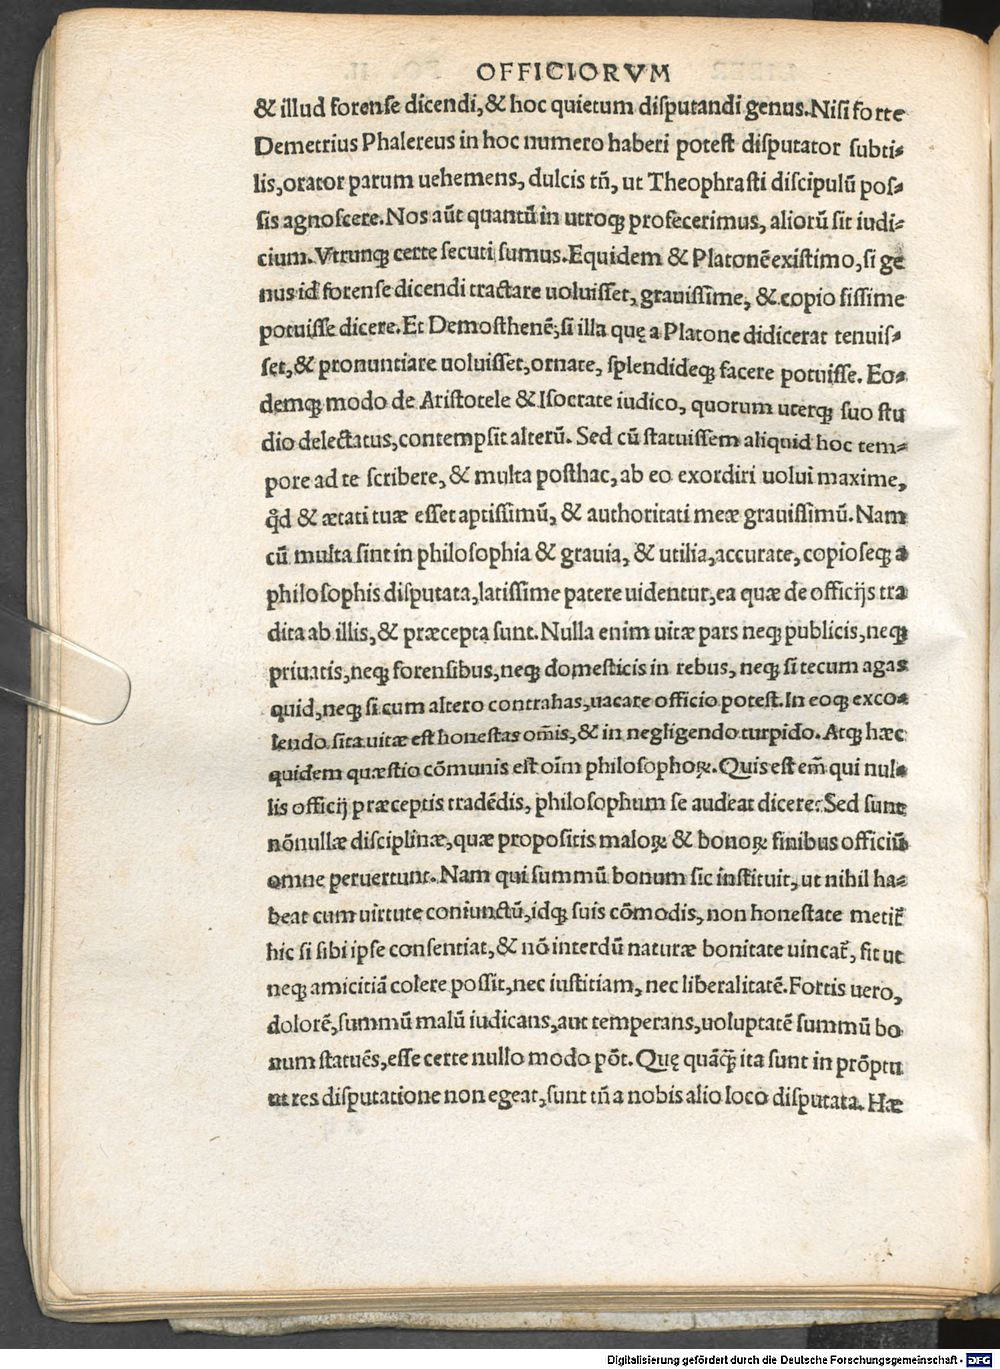 OFFICIORVM
& illud forense dicendi, & hoc quietum disputandi genus. Nisi forte
Demetrius Phalereus in hoc numero haberi potest disputator subti-
lis, orator parum uehemens, dulcis tñ, ut Theophrasti discipulũ pos-
sis agnoscere. Nos aũt quantũ in utroqꝫ profecerimus, aliorũ sit iudi-
cium. Vtrunqꝫ certe secuti sumus. Equidem & Platonẽ existimo, si ge
nus id forense dicendi tractare uoluisset, grauissime, & copiosissime
potuisse dicere. Et Demosthenẽ, si illa quę a Platone didicerat tenuis-
set, & pronuntiare uoluisset, ornate, splendideqꝫ facere potuisse. Eo-
demqꝫ modo de Aristotele & Isocrate iudico, quorum uterqꝫ suo stu
dio delectatus, contempsit alterũ. Sed cũ statuissem aliquid hoc tem-
pore ad te scribere, & multa posthac, ab eo exordiri uolui maxime,
qd̃ & ætati tuæ esset aptissimũ, & authoritati meæ grauissimũ. Nam
cũ multa sint in philosophia & grauia, & utilia, accurate, copioseqꝫ a
philosophis disputata, latissime patere uidentur, ea quæ de officijs tra
dita ab illis, & præcepta sunt. Nulla enim uitæ pars neqꝫ publicis, neqꝫ
priuatis, neqꝫ forensibus, neqꝫ domesticis in rebus, neqꝫ si tecum agas
quid, neqꝫ si cum altero contrahas, uacare officio potest. In eoqꝫ exco-
lendo sita uitæ est honestas om̃is, & in negligendo turpido. Atqꝫ hæc
quidem quæstio cõmunis est oĩm philosophoꝝ. Quis est em̃ qui nul-
lis officij præceptis tradẽdis, philosophum se audeat dicere? Sed sunt
nõnullæ disciplinæ, quæ propositis maloꝝ & bonoꝝ finibus officiũ
omne peruertunt. Nam qui summũ bonum sic instituit, ut nihil ha-
beat cum uirtute coniunctũ, idqꝫ suis cõmodis, non honestate metit̃
hic si sibi ipse consentiat, & nõ interdũ naturæ bonitate uincat̃, fit ut
neqꝫ amicitiã colere possit, nec iustitiam, nec liberalitatẽ. Fortis uero,
dolorẽ, summũ malũ iudicans, aut temperans, uoluptatẽ summũ bo
num statuẽs, esse certe nullo modo põt. Quę quãq̃ ita sunt in prõptu
ut res disputatione non egeat, sunt tñ a nobis alio loco disputata. Hæ
Digitalisierung gefördert durch die Deutsche Forschungsgemeinschaft - DFG